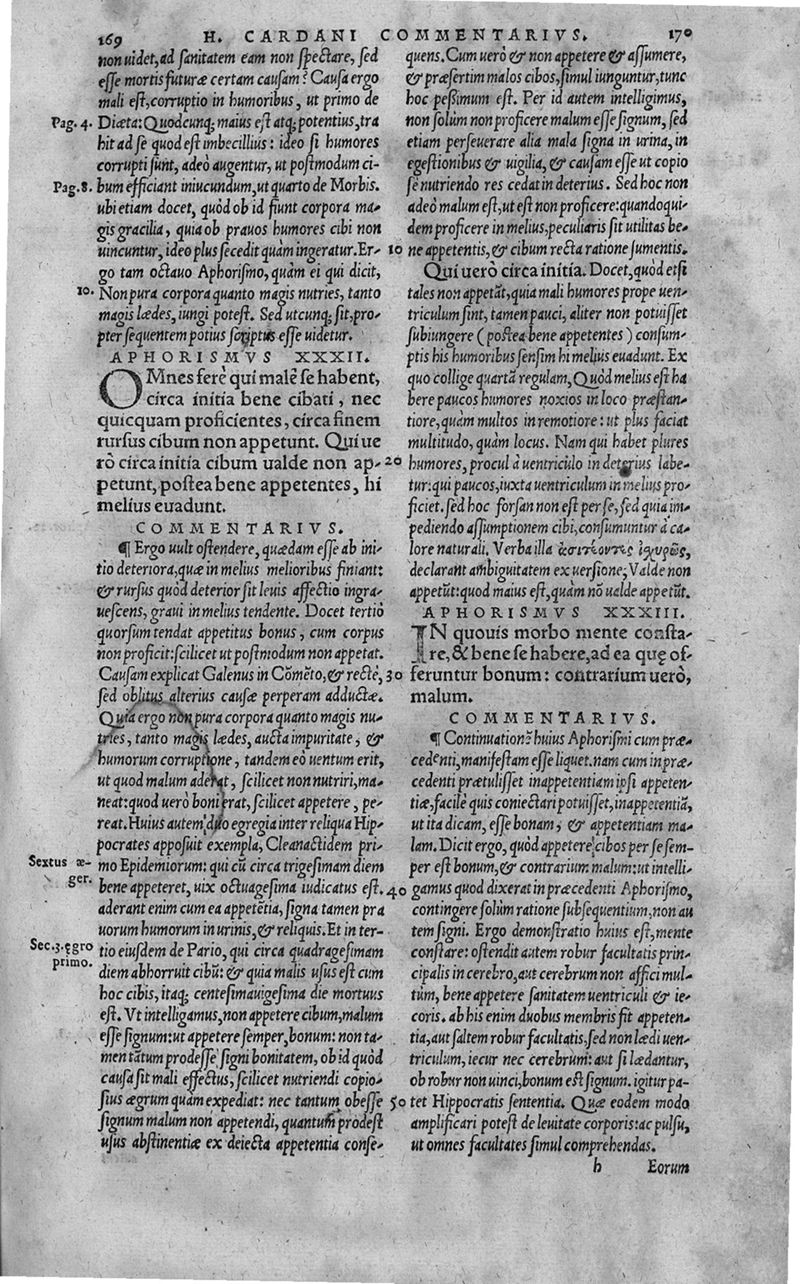 169 H. CARDANI COMMENTARIVS. 170
non uidet, ad sanitatem eam non spectare, sed
esse mortis futuræ certam causam? Causa ergo
mali est, corruptio in humoribus, ut primo de
Pag. 4. Diæta: Quodcunq; maius est atq; potentius, tra
hit ad se quod est imbecillius: ideo si humores
corrupti sunt, adeò augentur, ut postmodum ci-
Pag. 8. bum efficiant iniucundum, ut quarto de Morbis.
ubi etiam docet, quòd ob id fiunt corpora ma-
gis gracilia, quia ob prauos humores cibi non
uincuntur, ideo plus secedit quàm ingeratur. Er- 10
go tam octauo Aphorismo, quàm ei qui dicit,
10. Non pura corpora quanto magis nutries, tanto
magis lædes, iungi potest. Sed utcunq; sit, pro-
pter sequentem potius scriptus esse uidetur.
APHORISMVS XXXII.
OMnes ferè qui malè se habent,
circa initia bene cibati, nec
quicquam proficientes, circa finem
rursus cibum non appetunt. Qui ue
rò circa initia cibum ualde non ap- 20
petunt, postea bene appetentes, hi
melius euadunt.
COMMENTARIVS.
¶ Ergo uult ostendere, quædam esse ab ini-
tio deteriora, quæ in melius melioribus finiant:
& rursus quòd deterior sit leuis affectio ingra-
uescens, graui in melius tendente. Docet tertiò
quorsum tendat appetitus bonus, cum corpus
non proficit: scilicet ut postmodum non appetat.
Causam explicat Galenus in Cōmēto, & rectè, 30
sed oblitus alterius causæ perperam adductæ.
Quia ergo non pura corpora quanto magis nu-
tries, tanto magis lædes, aucta impuritate, &
humorum corruptione, tandem eò uentum erit,
ut quod malum aderat, scilicet non nutriri, ma-
neat: quod uerò boni erat, scilicet appetere, pe-
reat. Huius autem duo egregia inter reliqua Hip-
pocrates apposuit exempla, Cleanactidem pri-
Sextus æ- mo Epidemiorum: qui cū circa trigesimam diem
ger. bene appeteret, uix octuagesima iudicatus est. 40
aderant enim cum ea appetētia, signa tamen pra
uorum humorum in urinis, & reliquis. Et in ter-
Sec. 3. ęgro tio eiusdem de Pario, qui circa quadragesimam
primo. diem abhorruit cibū: & quia malis usus est cum
hoc cibis, itaq; centesimauigesima die mortuus
est. Vt intelligamus, non appetere cibum, malum
esse signum: ut appetere semper, bonum: non ta-
men tātum prodesse signi bonitatem, ob id quòd
causa sit mali effectus, scilicet nutriendi copio-
sius ægrum quàm expediat: nec tantum obesse 50
signum malum non appetendi, quantum prodest
usus abstinentiæ ex deiecta appetentia conse-
quens. Cum uerò & non appetere & assumere,
& præsertim malos cibos, simul iunguntur, tunc
hoc peßimum est. Per id autem intelligimus,
non solùm non proficere malum esse signum, sed
etiam perseuerare alia mala signa in urina, in
egestionibus & uigilia, & causam esse ut copio
sè nutriendo res cedat in deterius. Sed hoc non
adeò malum est, ut est non proficere: quandoqui-
dem proficere in melius, peculiaris sit utilitas be-
ne appetentis, & cibum recta ratione sumentis.
Qui uerò circa initia. Docet, quòd etsi
tales non appetāt, quia mali humores prope uen-
triculum sint, tamen pauci, aliter non potuisset
subiungere (postea bene appetentes) consum-
ptis his humoribus sensim hi melius euadunt. Ex
quo collige quartā regulam, Quòd melius est ha
bere paucos humores noxios in loco præstan-
tiore, quàm multos in remotiore: ut plus faciat
multitudo, quàm locus. Nam qui habet plures
humores, procul à uentriculo in deterius labe-
tur: qui paucos, iuxta uentriculum in melius pro-
ficiet. sed hoc forsan non est per se, sed quia im-
pediendo assumptionem cibi, consumuntur à ca-
lore naturali. Verba illa ἀσιτέοντες ἰσχυρῶς,
declarant ambiguitatem ex uersione; Valde non
appetūt: quod maius est, quàm nō ualde appetūt.
APHORISMVS XXXIII.
IN quouis morbo mente consta-
re, & bene se habere, ad ea quę of-
feruntur bonum: contrarium uerò,
malum.
COMMENTARIVS.
¶ Continuationē huius Aphorismi cum præ-
cedenti, manifestam esse liquet. nam cum in præ-
cedenti prætulisset inappetentiam ipsi appeten-
tiæ, facilè quis coniectari potuisset, inappetentiā,
ut ita dicam, esse bonam, & appetentiam ma-
lam. Dicit ergo, quòd appetere cibos per se sem-
per est bonum, & contrarium malum: ut intelli-
gamus quod dixerat in præcedenti Aphorismo,
contingere solùm ratione subsequentium, non au
tem signi. Ergo demonstratio huius est, mente
constare: ostendit autem robur facultatis prin-
cipalis in cerebro, aut cerebrum non affici mul-
tùm, bene appetere sanitatem uentriculi & ie-
coris. ab his enim duobus membris fit appeten-
tia, aut saltem robur facultatis, sed non lædi uen-
triculum, iecur nec cerebrum: aut si lædantur,
ob robur non uinci, bonum est signum. igitur pa-
tet Hippocratis sententia. Quæ eodem modo
amplificari potest de leuitate corporis: ac pulsu,
ut omnes facultates simul comprehendas.
h Eorum